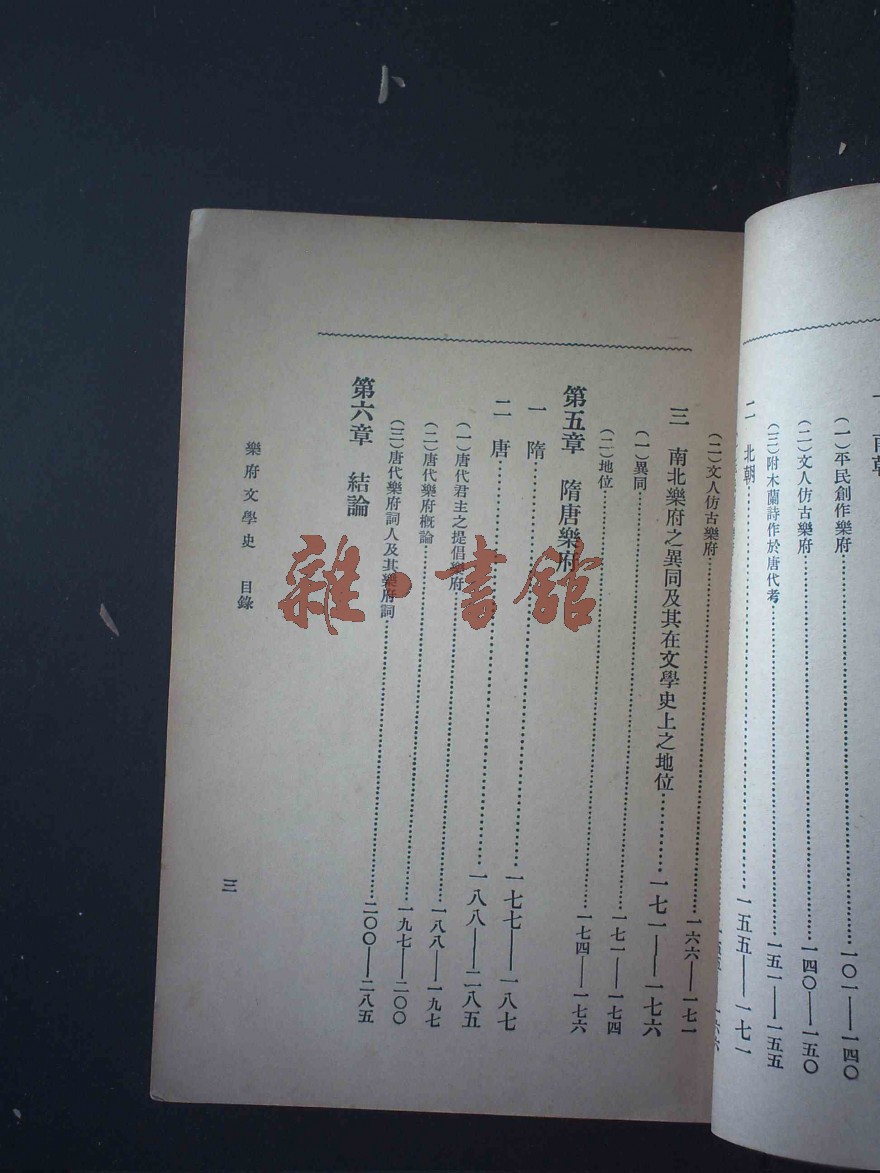 (一)平民創作樂府……一〇一——一四〇
(二)文人仿古樂府……一四〇——一五〇
(三)附木蘭詩作於唐代考……一五一——一五五
二 北朝……一五五——一七一
(二)文人仿古樂府……一六六——一七一
三 南北樂府之異同及其在文學史上之地位……一七一——一七六
(一)異同……一七一——一七四
(二)地位……一七四——一七六
第五章 隋唐樂府
一 隋……一七七——一八七
二 唐……一八八——二八五
(一)唐代君主之提倡樂府……一八八——一九七
(二)唐代樂府概論……一九七——二〇〇
(三)唐代樂府詞人及其樂府詞……二〇〇——二八五
第六章 結論
樂府文學史 目錄
三
雜·書館